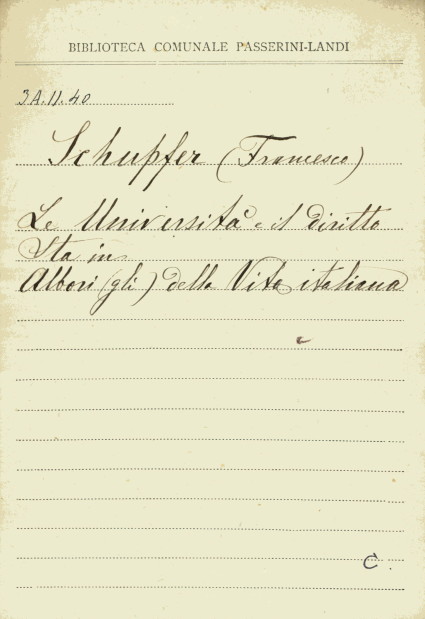 BIBLIOTECA COMUNALE PASSERINI-LANDI
3A.11.40
Schupfer (Francesco)
Le Università e il diritto
Sta in
Albori (gli) della Vita italiana
C.